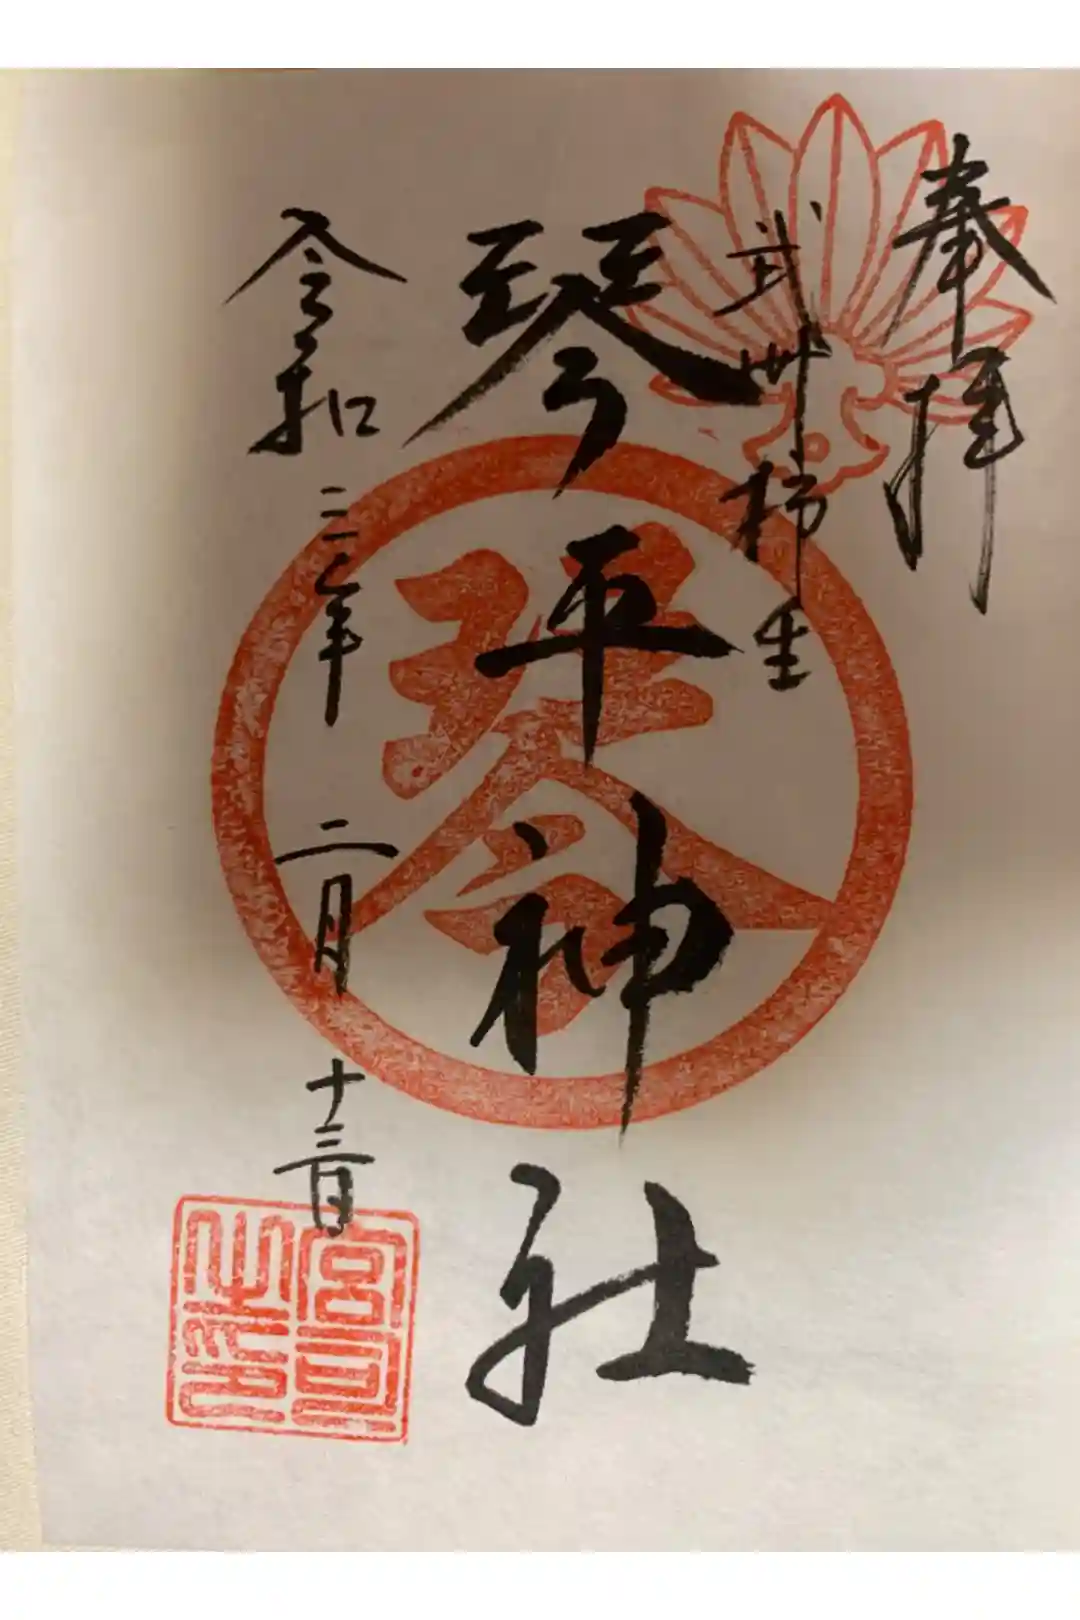 奉拝
武州柿生
琴平神社
令和三年 二月 十三日
琴
宮司之印